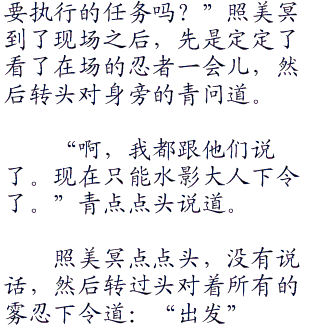 要执行的任务吗？”照美冥
到了现场之后，先是定定了
看了在场的忍者一会儿，然
后转头对身旁的青问道。
“啊，我都跟他们说
了。现在只能水影大人下令
了。”青点点头说道。
照美冥点点头，没有说
话，然后转过头对着所有的
雾忍下令道：“出发”